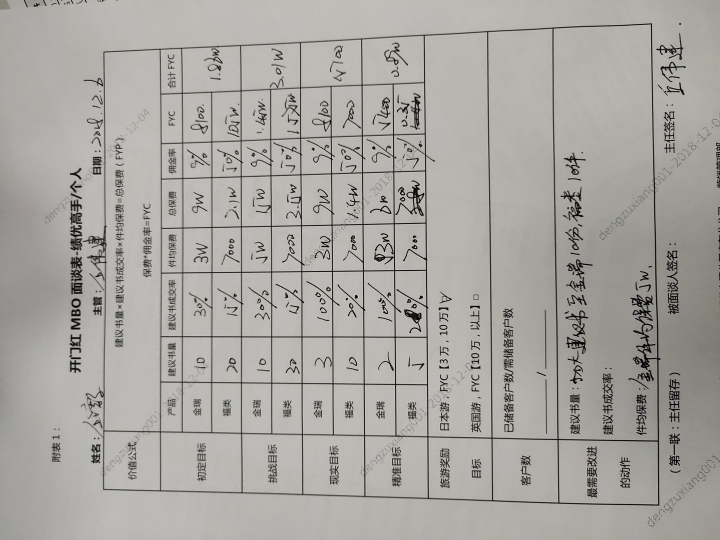 附表1：
开门红 MBO 面谈表-绩优高手/个人
姓名： 主管： 日期：2018.12.6
价值公式 建议书量×建议书成交率×件均保费=总保费（FYP）
保费*佣金率=FYC
产品 建议书量 建议书成交率 件均保费 总保费 佣金率 FYC 合计FYC
初定目标 金瑞 10 30% 3W 9W 9% 8100 1.86W
福类 20 15% 7000 2.1W 50% 1.05W
挑战目标 金瑞 10 30% 5W 15W 9% 1.45W 3.01W
福类 30 15% 7000 3.5W 50%
现实目标 金瑞 3 100% 3W 9W 9% 8100
福类 10 20% 7000 1.4W 50% 7000
精准目标 金瑞 2 100% 3W 6W 9% 5400 0.89W
福类 5 20% 7000 7000 50% 0.35
旅游奖励 日本游，FYC【3万，10万】√
目标 英国游，FYC【10万，以上】□
客户数 已储备客户数/需储备客户数
/
最需要改进 建议书量：加大建议书至金瑞10份，福类10件.
的动作 建议书成交率：
件均保费：金瑞件均保费5W.
（第一联：主任留存） 被面谈人签名： 主任签名：
dengzuxiang001-2018-12-04